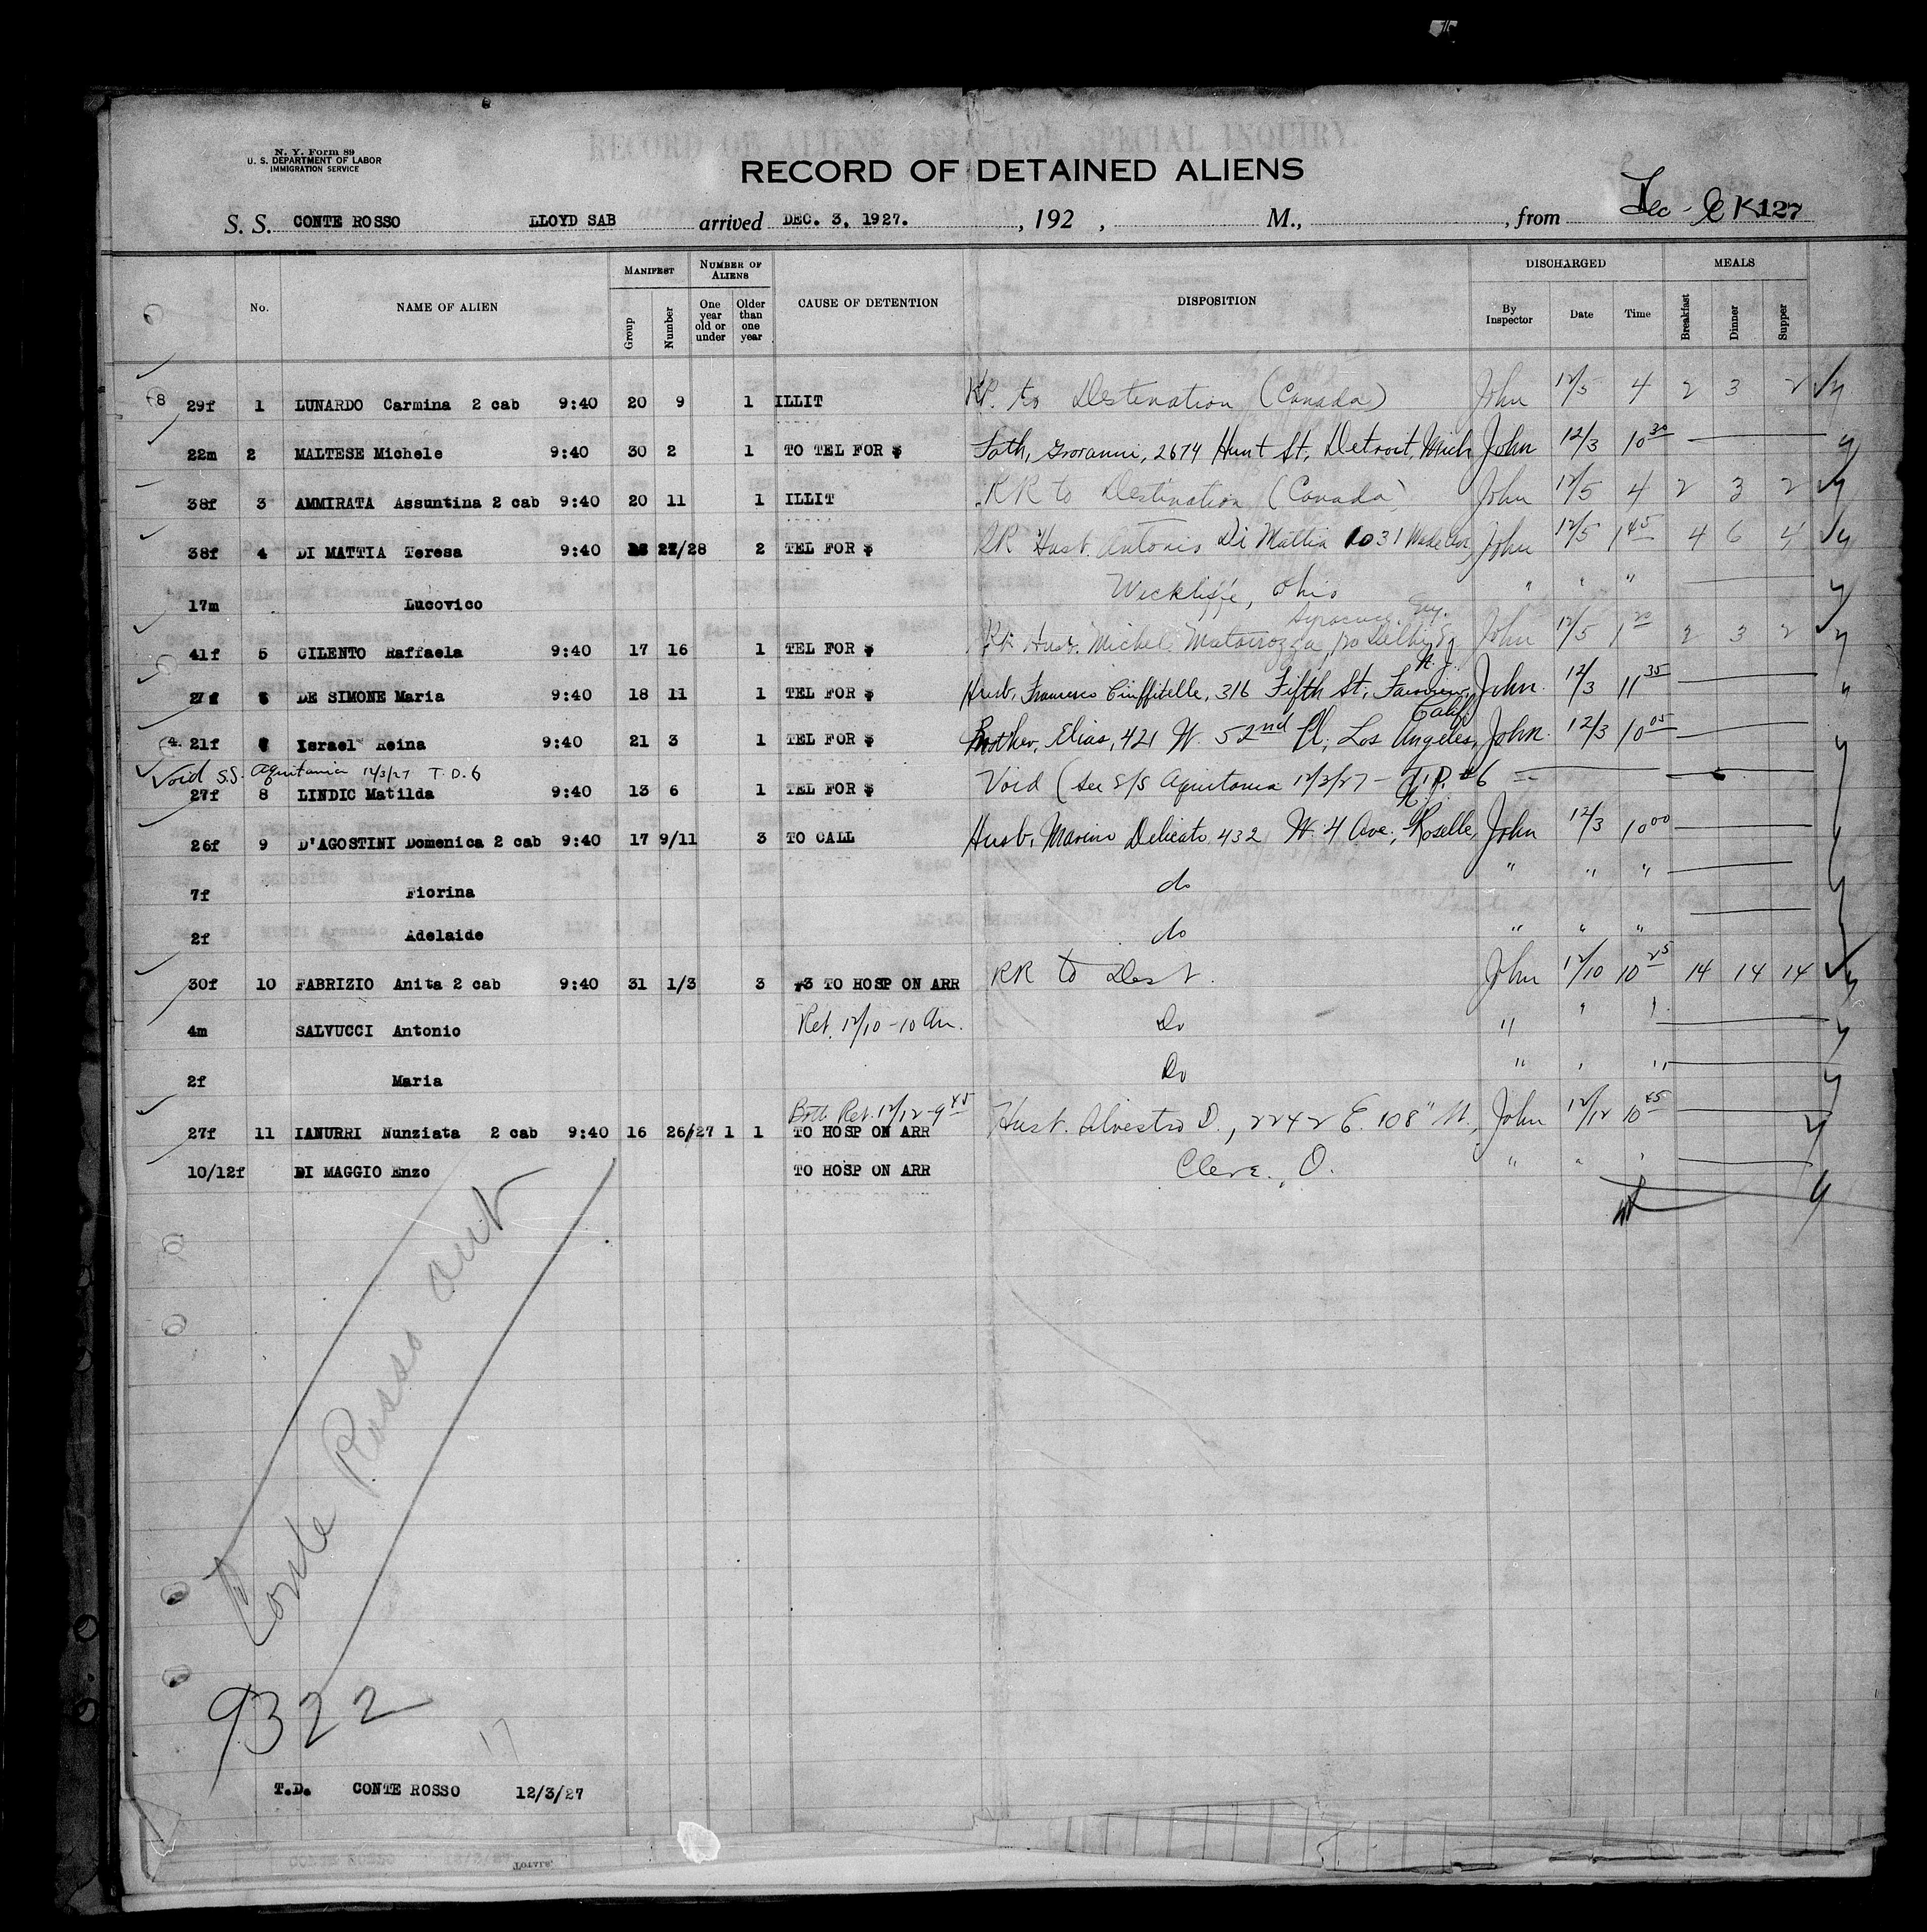 N. Y. Form 89
U. S. DEPARTMENT OF LABOR
IMMIGRATION SERVICE
RECORD OF DETAINED ALIENS
S. S. CONTE ROSSO LLOYD SAB arrived DEC. 3, 1927. , 192 , M., , from 127
MANIFEST NUMBER OF ALIENS DISCHARGED MEALS
No. NAME OF ALIEN Group Number One year old or under Older than one year CAUSE OF DETENTION DISPOSITION By Inspector Date Time Breakfast Dinner Supper
8 29f 1 LUNARDO Carmina 2 cab 9:40 20 9 1 ILLIT RR to Destination (Canada) John 12/5 4 2 3 2
22m 2 MALTESE Michele 9:40 30 2 1 TO TEL FOR $ Fath, Giovanni, 2674 Hunt St, Detroit, Mich John 12/3 10 30
38f 3 AMMIRATA Assuntina 2 cab 9:40 20 11 1 ILLIT RR to Destination (Canada) John 12/5 4 2 3 2
38f 4 DI MATTIA Teresa 9:40 27/28 2 TEL FOR $ RR Husb. Antonio Di Mattia 1031 Wade Ave, John 12/5 1 45 4 6 4
17m Lucovico Wickliffe, Ohio " " "
Syracuse, N.Y.
41f 5 CILENTO Raffaela 9:40 17 16 1 TEL FOR $ RR Husb. Michel John 12/5 1 20 2 3 2
N.J.
27f 6 DE SIMONE Maria 9:40 18 11 1 TEL FOR $ Husb, Francesco Ciuffitelle, 316 Fifth St, Fairview, John 12/3 11 35
Calif
4 21f Israel Reina 9:40 21 3 1 TEL FOR $ Brother, Elias, 421 W. 52nd Pl, Los Angeles, John 12/3 10 05
Void S.S. Aquitania 12/3/27 T.D.6
27f 8 LINDIC Matilda 9:40 13 6 1 TEL FOR $ Void (see S/S Aquitania 12/3/27 - T.D. #6
N.J.
26f 9 D'AGOSTINI Domenica 2 cab 9:40 17 9/11 3 TO CALL Husb, Marino Delicato 432 W. 4 Ave, Roselle, John 12/3 10 00
7f Fiorina do " " "
2f Adelaide do " " "
30f 10 FABRIZIO Anita 2 cab 9:40 31 1/3 3 #3 TO HOSP ON ARR RR to Dest. John 12/10 10 25 14 14 14
4m SALVUCCI Antonio Ret. 12/10 - 10 Am. Do " "
2f Maria Do " " "
Both Ret. 12/12 - 9 45
27f 11 IANURRI Nunziata 2 cab 9:40 16 26/27 1 1 TO HOSP ON ARR Husb. Silvestro D., 2242 E. 108" St., John 12/12 10 45
10/12f DI MAGGIO Enzo TO HOSP ON ARR Cleve., O. " " "
Conte Rosso out
9322
17
T.D. CONTE ROSSO 12/3/27